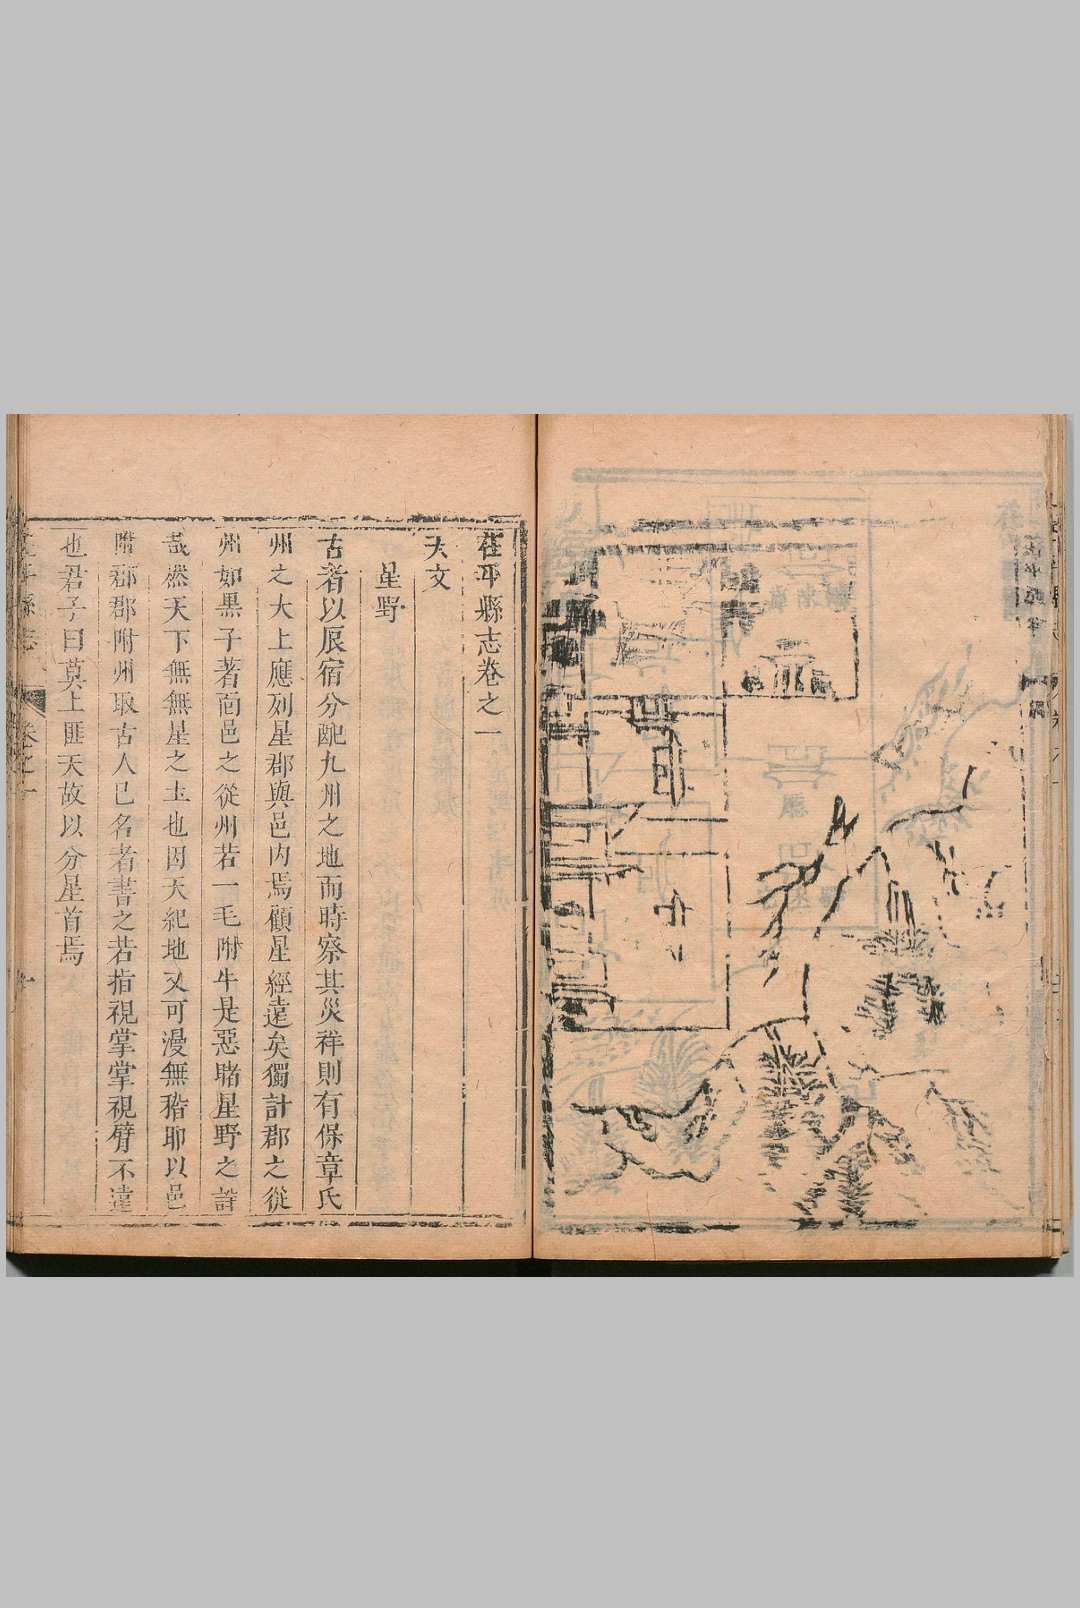 茌平縣志卷之一
天文
星野
古者以辰宿分配九州之地而時察其災祥則有保章氏
州之大上應列星郡與邑内焉顧星經遠矣獨計郡之從
州如黒子著面邑之從州若一毛附牛是惡睹星野之諧
哉然天下無無星之土也因天紀地又可漫無稽耶以邑
附郡郡附州取古人已名者書之若指視掌掌視臂不遠
也君子曰莫上匪天故以分星首焉
茌平縣志
卷之一
一